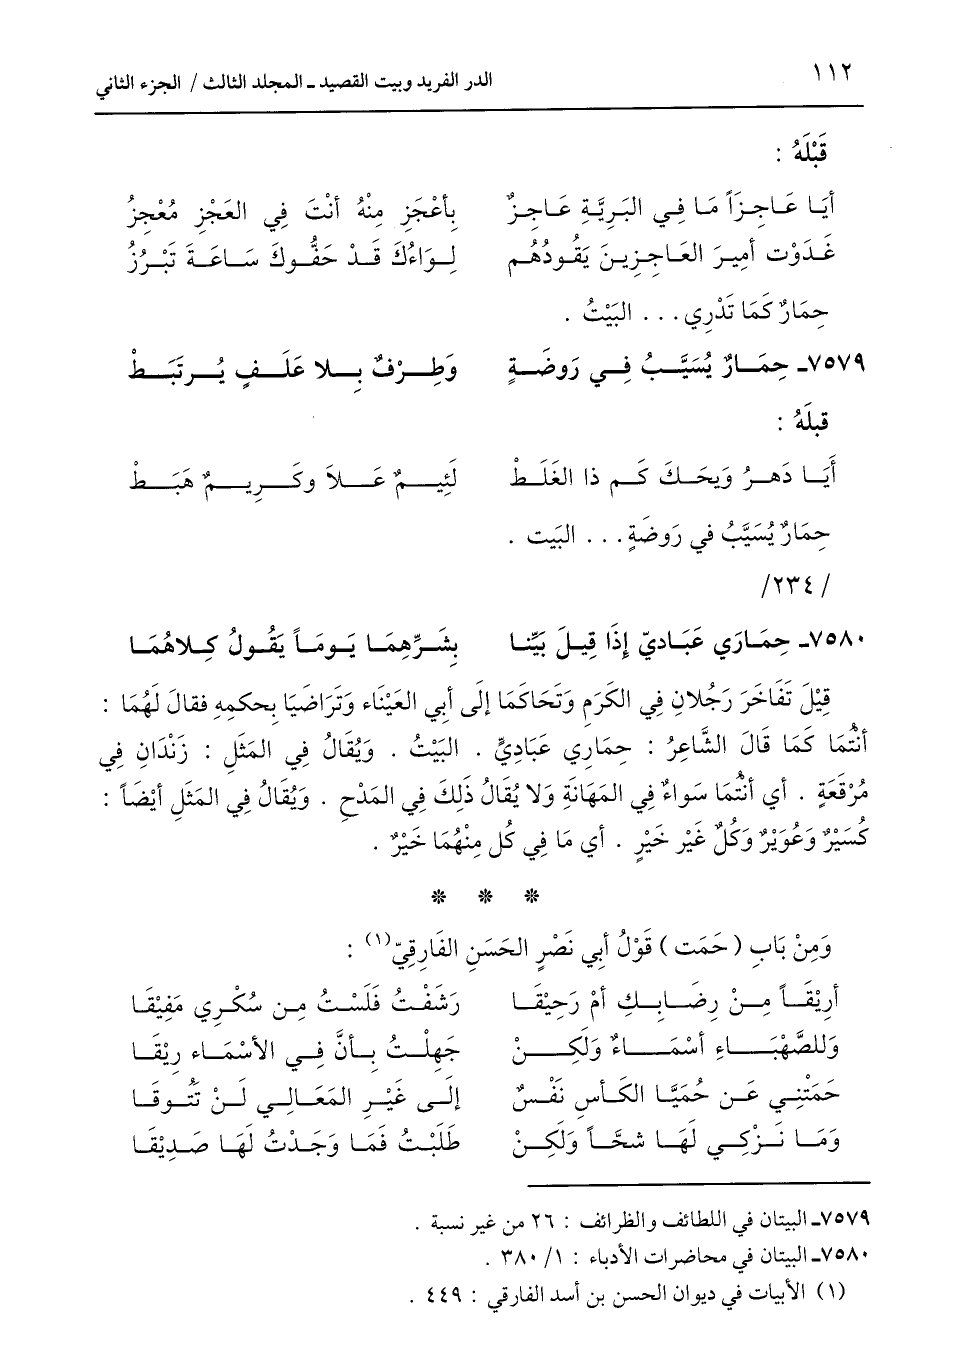 ١١٢ الدر الفريد وبيت القصيد ـ المجلد الثالث / الجزء الثاني
قَبْلَهُ :
أيَا عَاجِزَاً مَا فِي البَرِيَّةِ عَاجِزٌ بِأعْجَزِ مِنْهُ أنْتَ فِي العَجْزِ مُعْجِزُ
غَدَوْت أمِيرَ العَاجِزينَ يَقُودُهُم لِوَاءُكَ قَدْ حَفُّوكَ سَاعَةَ تَبْرُزُ
حِمَارٌ كَمَا تَدْرِي . . . البَيْتُ .
٧٥٧٩ـ حِمَارٌ يُسَيَّبُ فِي رَوضَةٍ وَطِرْفٌ بِلا عَلَفٍ يُرتَبَطْ
قبلَهُ :
أَيَا دَهرُ وَيحَكَ كَم ذا الغَلَطْ لَئِيمٌ عَلاَ وكَرِيمٌ هَبَطْ
حِمَارٌ يُسَيَّبُ في رَوضَةٍ . . . البَيت .
/٢٣٤/
٧٥٨٠ـ حِمَارَي عَبَاديّ إذَا قِيلَ بَيِّنا بِشَرِّهِمَا يَومَاً يَقُولُ كِلاهُمَا
قِيْلَ تَفَاخَرَ رَجُلانِ فِي الكَرَمِ وَتَحَاكَمَا إلَى أبي العَيْنَاء وَتَرَاضَيَا بِحكمِهِ فقالَ لَهُمَا :
أنتُمَا كَمَا قَالَ الشَّاعِرُ : حِمَارِي عَبَادِيٍّ . البَيْتُ . وَيُقَالُ فِي المَثَلِ : زَنْدَانِ فِي
مُرْقَعَةٍ . أي أنتُمَا سَواءٌ فِي المَهَانَةِ وَلا يُقَالُ ذَلِكَ فِي المَدْحِ . وَيُقَالُ فِي المَثَلِ أيْضَاً :
كُسَيْرٌ وَعُوَيْرٌ وَكُلٌّ غَيْر خَيْرٍ . أي مَا فِي كُل مِنْهُمَا خَيْرٌ .
* * *
وَمِنْ بَابِ ( حَمَت ) قَوْلُ أبي نَصْرٍ الحَسَنِ الفَارِقِيّ(١) :
أرِيْقَاً مِنْ رِضَابِكِ أمْ رَحِيْقَا رَشَفْتُ فَلَسْتُ مِن سُكْرِي مَفِيْقَا
وَللصَّهْبَاءِ أسْمَاءٌ وَلَكِنْ جَهِلْتُ بِأنَّ فِي الأسْمَاءِ رِيْقَا
حَمَتْنِي عَن حُمَيَّا الكَأسِ نَفْسٌ إلَى غَيْرِ المَعَالِي لَنْ تَتُوقَا
وَمَا نَزْكِي لَهَا شحَّاً وَلَكِنْ طَلَبْتُ فَمَا وَجَدْتُ لَهَا صَدِيْقَا
٧٥٧٩ـ البيتان في اللطائف والظرائف : ٢٦ من غير نسبة .
٧٥٨٠ـ البيتان في محاضرات الأدباء : ١/ ٣٨٠ .
(١) الأبيات في ديوان الحسن بن أسد الفارقي : ٤٤٩ .